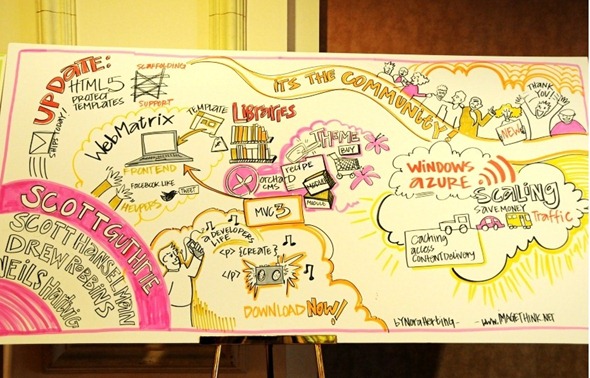 UPDATE:
SHIPS TODAY!
HTML5
PROJECT
TEMPLATES
SCAFFOLDING
SUPPORT
IT'S THE COMMUNITY!
THANK YOU!
NEW!
WebMatrix
TEMPLATE
FRONTEND
FACEBOOK LIKE
TWEET
HELPERS
LIBRARIES
THEME
BUY
RECIPE
ORCHARD
CMS
MODULE
MODULE
MVC3
WINDOWS
AZURE
SCALING
SAVE MONEY
TRAFFIC
CACHING
ACCESS
CONTENT DELIVERY
SCOTT GUTHRIE
SCOTT HANSELMAN
DREW ROBBINS
NEILS Hartvig
a DEVELOPERS
LIFE
<P> {CREATE}
</P>
DOWNLOAD NOW!
by Nora Herting -
- www.IMAGETHINK.NET